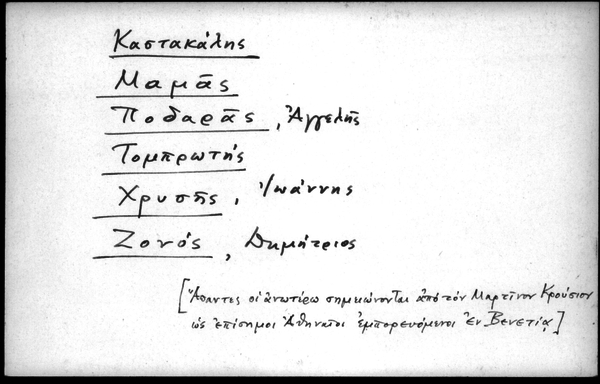 Καστακάλης
Μαμᾶς
Ποδαρᾶς, Ἀγγελῆς
Τομπρωτής
Χρυσῆς, Ἰωάννης
Ζονός, Δημήτριος
[Ἅπαντες οἱ ἀνωτέρω σημειώνονται ἀπὸ τὸν Μαρτῖνον Κρούσιον
ὡς ἐπίσημοι Ἀθηναῖοι ἐμπορευόμενοι ἐν Βενετίᾳ]